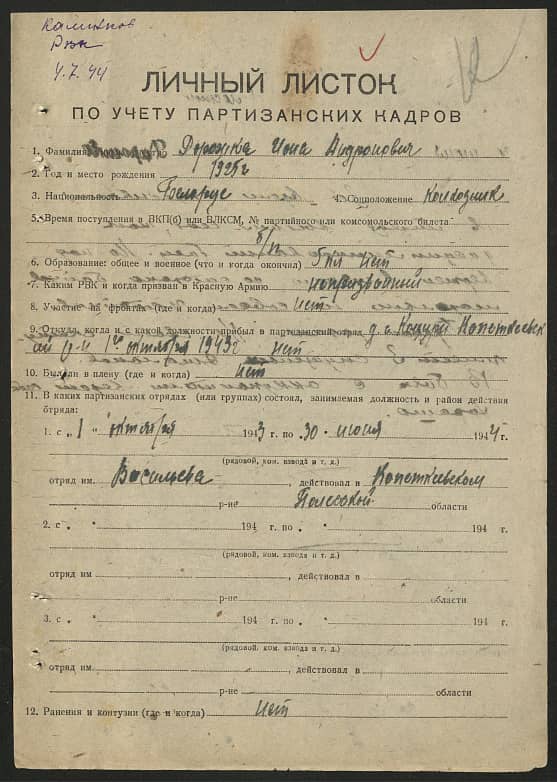 Рвк
4.7.44
ЛИЧНЫЙ ЛИСТОК
ПО УЧЕТУ ПАРТИЗАНСКИХ КАДРОВ
1. Фамилия Дорожка Иона Андронович
2. Год и место рождения 1925г
3. Национальность Беларус 4. Соцположение Колхозник
5. Время поступления в ВКП(б) или ВЛКСМ, № партийного или комсомольского билета
б/п
6. Образование: общее и военное (что и когда окончил) 5кл нет
7. Каким РВК и когда призван в Красную Армию непризванный
8. Участие на фронтах (где и когда) нет
9. Откуда, когда и с какой должности прибыл в партизанский отряд д. Копаткевск
ий р-н 1го октября 1943г нет
10. Был ли в плену (где и когда) нет
11. В каких партизанских отрядах (или группах) состоял, занимаемая должность и район действия
отряда:
1. с „1" октября 1943 г. по „30" июня 1944 г.
(рядовой, ком. взвода и т. д.)
отряд им. Васильева, действовал в Копаткевском
р-не Полесской области
2. с „ " 194 г. по „ " 194 г.
(рядовой, ком. взвода и т. д.)
отряд им , действовал в
р-не области
3. с „ " 194 г. по „ " 194 г.
(рядовой, ком. взвода и т. д.)
отряд им , действовал в
р-не области
12. Ранения и контузии (где и когда) нет